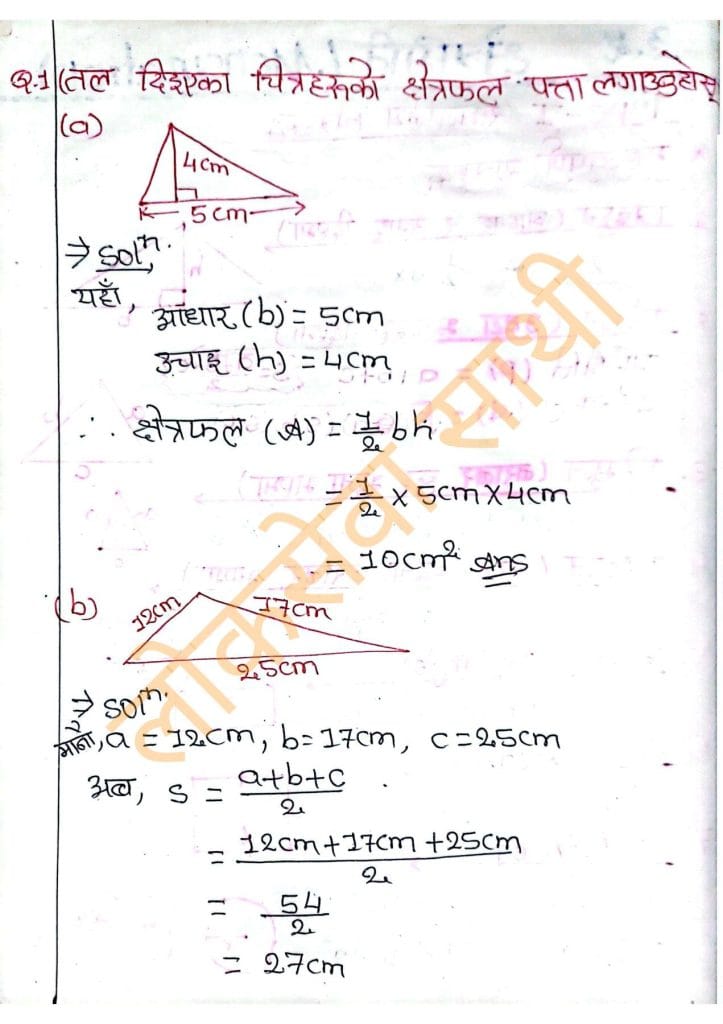 Q.1 तल दिइएका चित्रहरूको क्षेत्रफल पत्ता लगाउनुहोस्
(a)
4cm
5cm
→ Solⁿ.
यहाँ,
आधार (b) = 5cm
उचाइ (h) = 4cm
∴ क्षेत्रफल (A) = 1/2 bh
= 1/2 × 5cm × 4cm
= 10cm² Ans
(b)
12cm 17cm
25cm
→ Solⁿ.
मानौ, a = 12cm, b = 17cm, c = 25cm
अब, s = a+b+c/2
= 12cm + 17cm + 25cm/2
= 54/2
= 27cm
लोकसेवा साथी